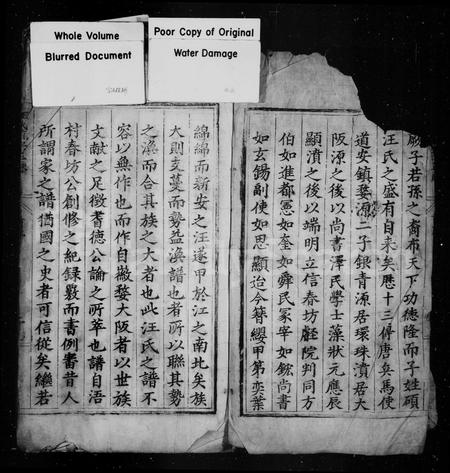 Whole Volume
Blurred Document
Poor Copy of Original
Water Damage
厥子若孫之裔布天下功德隆而子姓碩
汪氏之盛有自来矣應十三傳唐矣馬使
道安鎮婺源二子銀青源居環珠濆居大
阪源之後以尚書澤民學士藻狀元應辰
顯濆之後以端明立信春坊壑院判同方
伯如進都憲如奎如舜民冢宰如鋐尚書
如玄錫副使如思顯迨今簪纓甲第奕葉
綿綿而新安之汪遂甲於江之南北矣族
大則支蔓而勢益渙譜也者所以聯其勢
之渙而合其族之大者也此汪氏之譜不
容以無作也而作自敝婺大阪者以世族
文献之足徵耆德公論之所萃也譜自浯
村春坊公創修之紀録嚴而書例審昔人
所謂家之譜猶國之史者可信從矣繼若